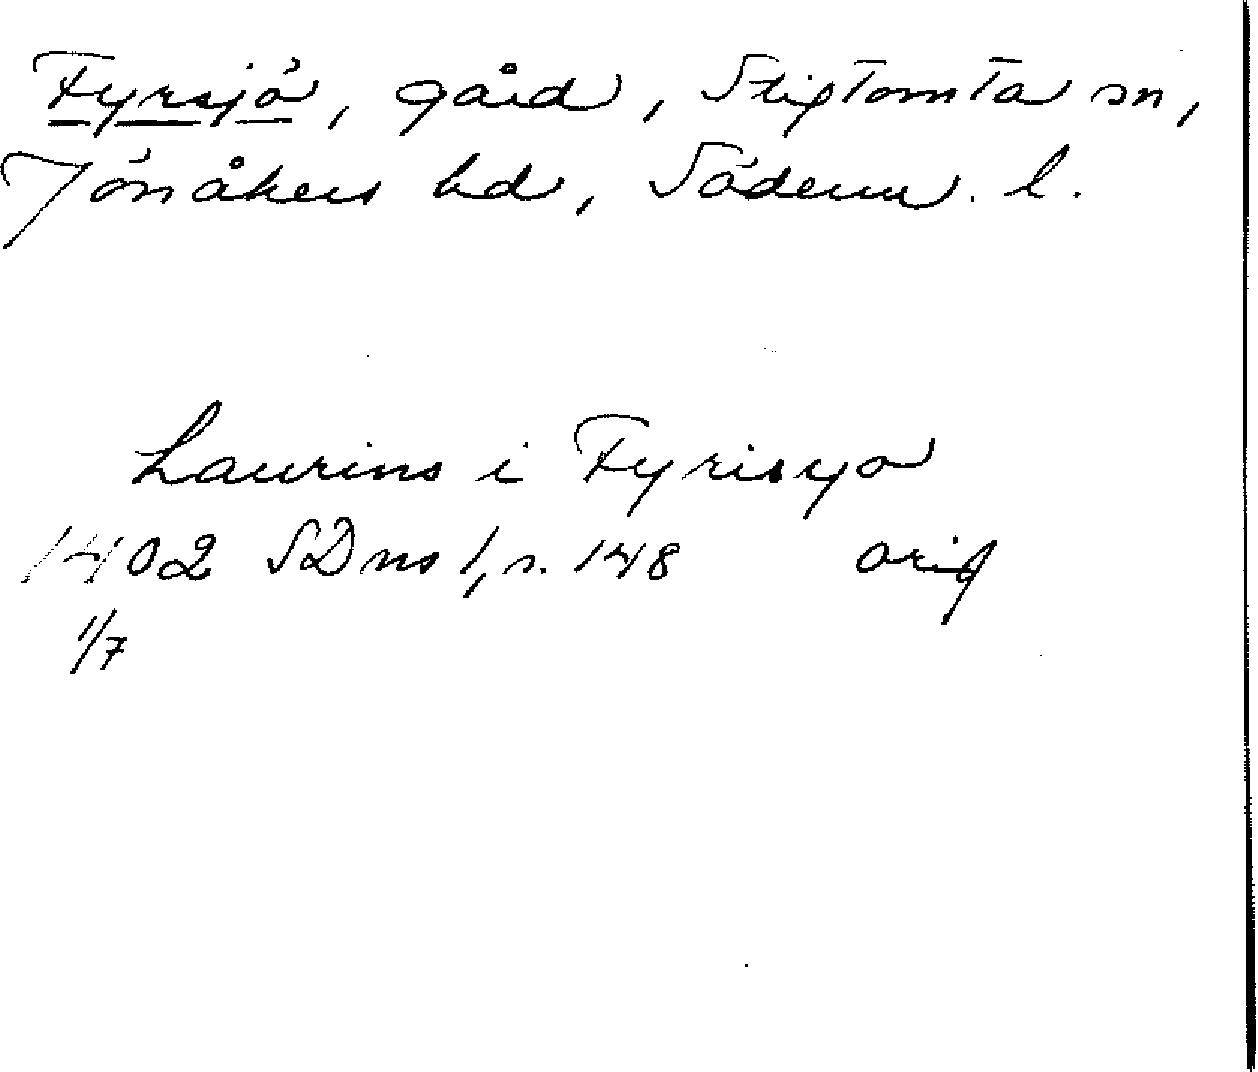 Fyrsjö, gård, Stigtomta sn,
Jönåkers hd, Söderm. l.
Laurins i Fyrisyo
1402 SDns 1, s. 148 orig
1/7